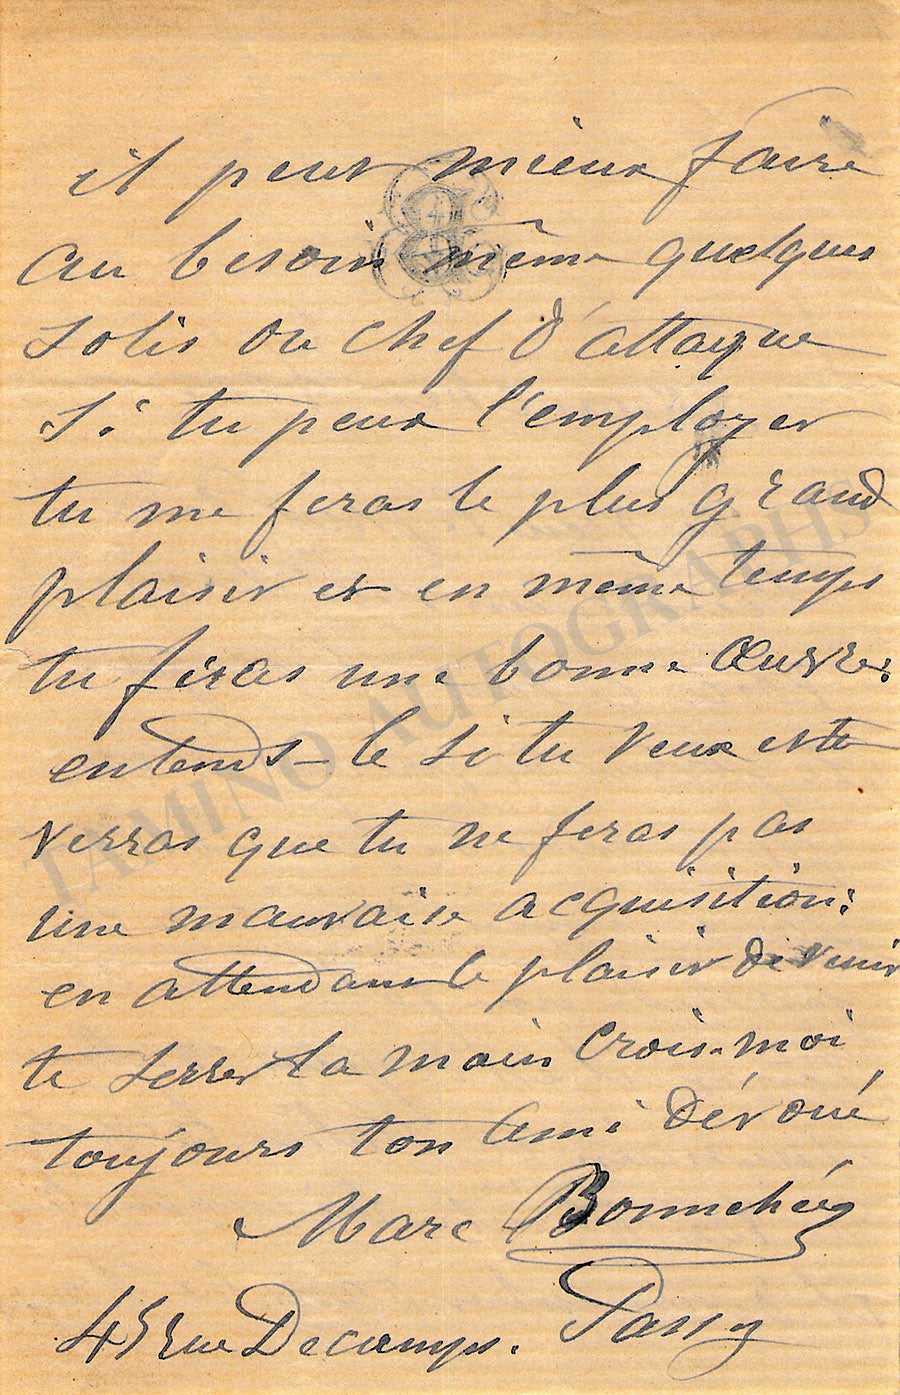 il peut mieux faire
au besoin même quelques
solis ou chef d'attaque
si tu peux l'employer
tu me feras le plus grand
plaisir et en même temps
tu feras une bonne Œuvre.
entends-le si tu veux et tu
verras que tu ne feras pas
une mauvaise acquisition:
en attendant le plaisir de venir
te serrer la main Crois-moi
toujours ton ami dévoué
Marc Bonnehée
45 rue Decamps. Passy
TAMINO AUTOGRAPHS